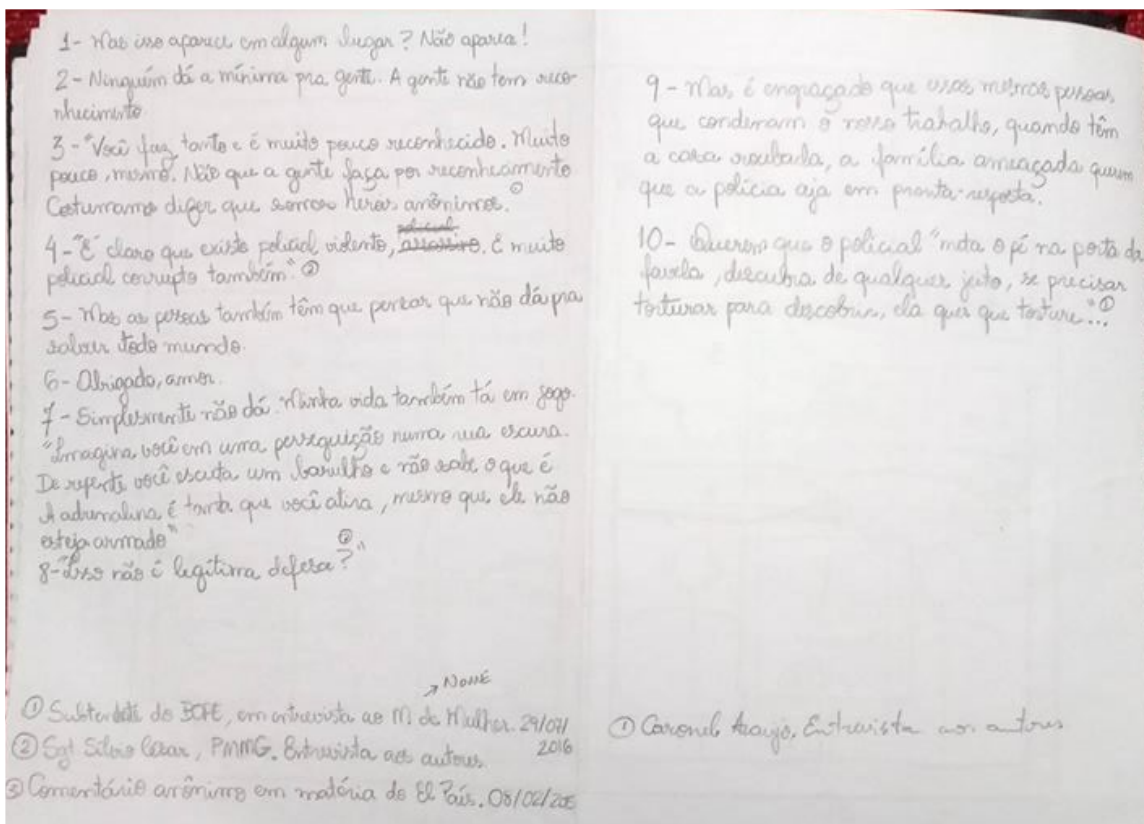 1- Mas isso aparece em algum lugar? Não aparece!
2- Ninguém dá a mínima pra gente. A gente não tem reco-
nhecimento.
3- "Você faz tanto e é muito pouco reconhecido. Muito
pouco, mesmo. Não que a gente faça por reconhecimento.
Costumamos dizer que somos heróis anônimos." ①
policial
4- "É claro que existe policial violento, assassino. E muito
policial corrupto também" ②
5- Mas as pessoas também têm que pensar que não dá pra
salvar todo mundo.
6- Obrigado, amor.
7- Simplesmente não dá. Minha vida também tá em jogo.
"Imagina você em uma perseguição numa rua escura.
De repente você escuta um barulho e não sabe o que é
A adrenalina é tanta que você atira, mesmo que ele não
esteja armado"
8- "Isso não é legítima defesa?"
→ NOME
① do BOPE, em entrevista ao M. de Mulher. 29/07/
2016
② Sgt Silvio Cesar, PMMG. Entrevista aos autores.
③ Comentário anônimo em matéria do El País. 08/02/
9- Mas é engraçado que essas mesmas pessoas,
que condenam o nosso trabalho, quando têm
a casa roubada, a família ameaçada querem
que a polícia aja em pronta-resposta.
10- Querem que o policial "meta o pé na porta da
favela, descubra de qualquer jeito, se precisar
torturar para descobrir, ela quer que torture..." ①
① Coronel Araújo. Entrevista aos autores